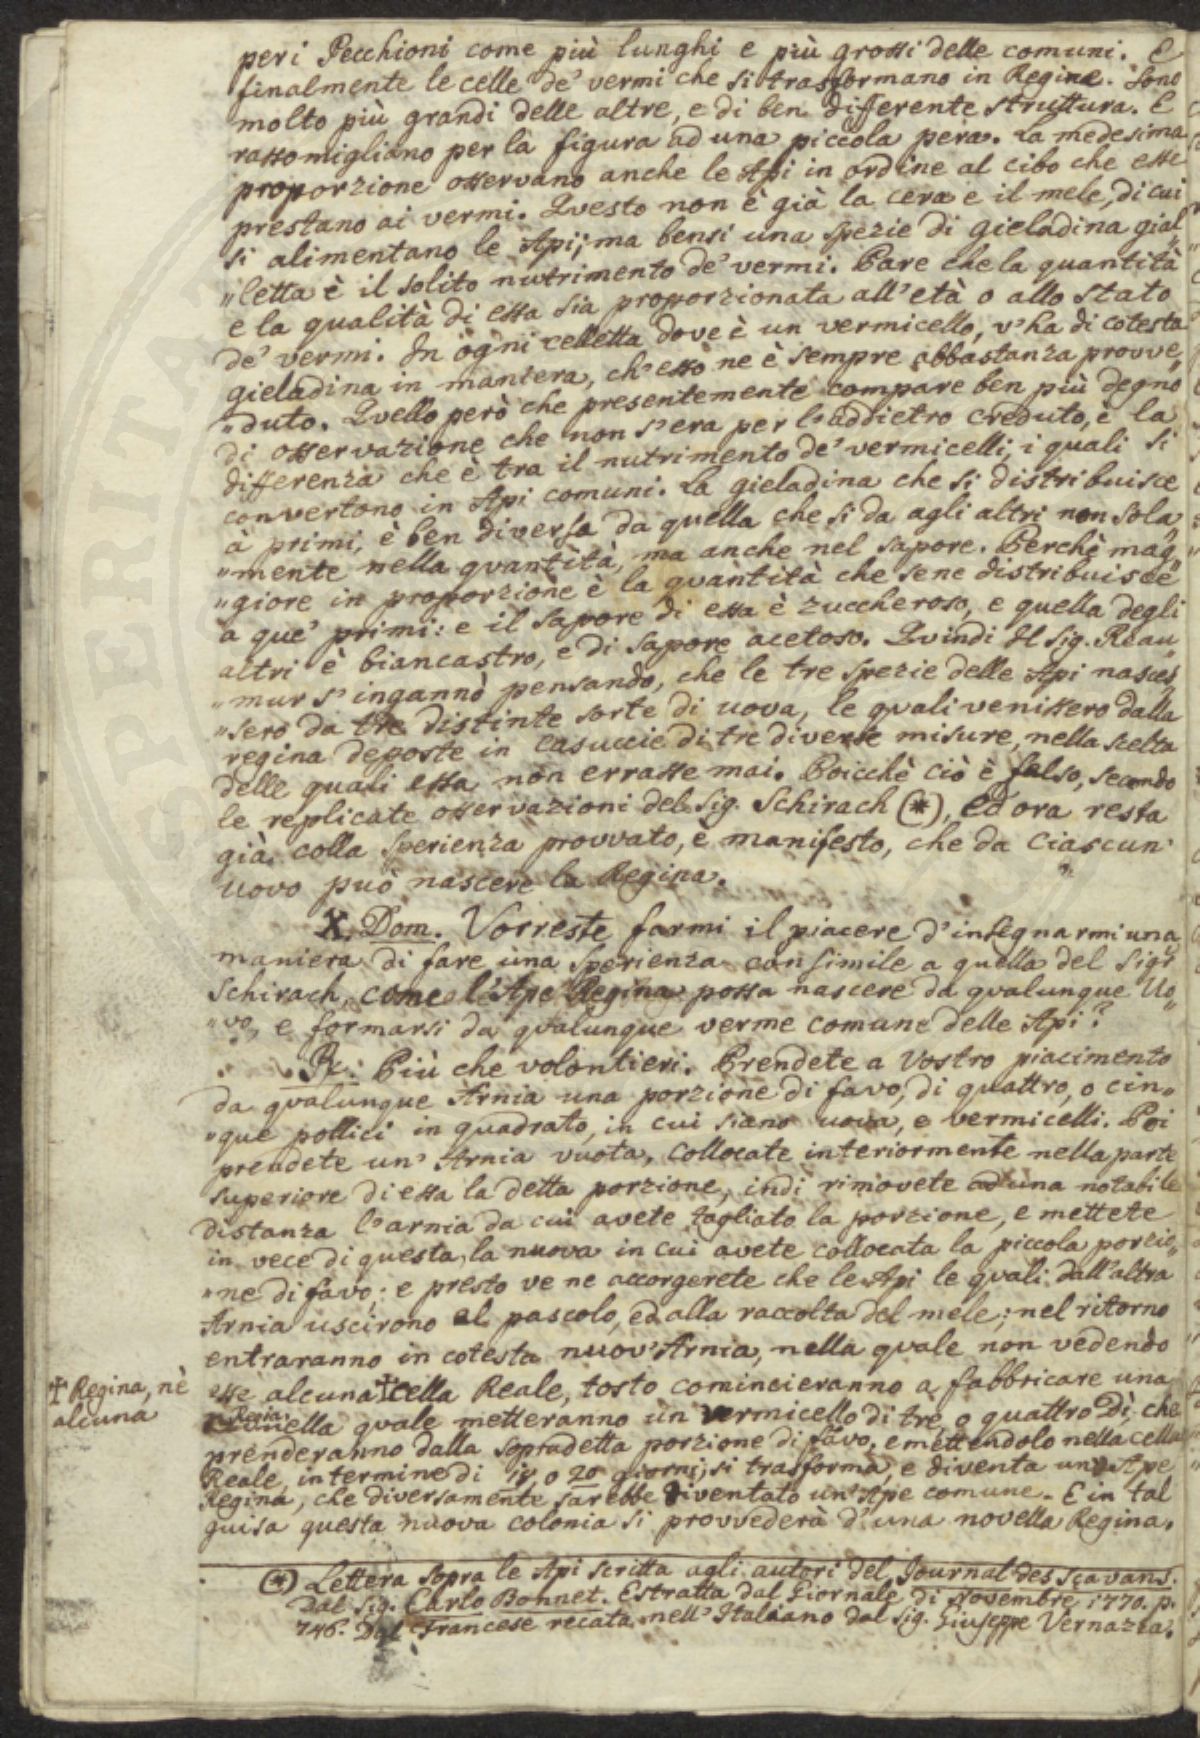 peri Pecchioni come più lunghi e più grossi delle comuni. E
finalmente le celle de' vermi che si trasformano in Regine. Sono
molto più grandi delle altre, e di ben differente struttura. E
rassomigliano per la figura ad una piccola pera. La medesima
proporzione osservano anche le Api in ordine al cibo che esse
prestano ai vermi. Questo non è già la cera e il mele, di cui
si alimentano le Api; ma bensi una spezie di gieladina gial„
„letta è il solito nutrimento de' vermi. Pare che la quantità
e la qualità di essa sia proporzionata all'età o allo stato
de' vermi. In ogni celletta dove è un vermicello, v'ha di cotesta
gieladina in maniera, ch'esso ne è sempre abbastanza provve„
„duto. Quello però che presentemente compare ben più degno
di osservazione che non s'era per l'addietro creduto, è la
differenza che è tra il nutrimento de' vermicelli, i quali si
convertono in Api comuni. La gieladina che si distribuisce
à primi, è ben diversa da quella che si da agli altri non sola„
„mente nella quantità, ma anche nel sapore. Perchè mag„
„giore in proporzione è la quantità che sene distribuisce
a que' primi: e il sapore di essa è zuccheroso, e quella degli
altri è biancastro, e di sapore acetoso. Quindi Il Sig. Reau„
„mur s'ingannò pensando, che le tre spezie delle Api nasces„
„sero da tre distinte sorte di uova, le quali venissero dalla
regina deposte in casuccie di tre diverse misure, nella scelta
delle quali essa non errasse mai. Poicchè ciò è falso, secondo
le replicate osservazioni del Sig. Schirach (*), ed ora resta
già colla sperienza provvato, e manifesto, che da ciascun
uovo può nascere la Regina.
X. Dom. Vorreste farmi il piacere d'insegnarmi una
maniera di fare una sperienza consimile a quella del Sigr
Schirach, come l'Ape Regina possa nascere da qualunque Uo„
„vo, e formarsi da qualunque verme comune delle Api?
R: Più che volontieri. Prendete a Vostro piacimento
da qualunque Arnia una porzione di favo, di quattro, o cin„
„que pollici in quadrato, in cui siano uova, e vermicelli. Poi
prendete un' Arnia vuota, collocate interiormente nella parte
superiore di essa la detta porzione, indi rimovete ad una notabile
distanza l'arnia da cui avete tagliato la porzione, e mettete
in vece di questa, la nuova in cui avete collocata la piccola porzio„
„ne di favo; e presto ve ne accorgerete che le Api le quali dall'altra
Arnia uscirono al pascolo, ed alla raccolta del mele; nel ritorno
entraranno in cotesta nuov'Arnia, nella quale non vedendo
esse alcuna ☩ cella Reale, tosto comincieranno a fabbricare una
☩ Regina, nè
alcuna
Regia
nella quale metteranno un vermicello di tre, o quattro Dì, che
prenderanno dalla sopradetta porzione di favo, e mettendolo nella cella
Reale, in termine di o 20 giorni, si trasforma, e diventa un' Ape
Regina, che diversamente sarebbe diventato un' Ape comune. E in tal
guisa questa nuova colonia si provvederà d'una novella Regina.
(*) Lettera sopra le Api scritta agli autori del Journal des Sçavans.
Dal Sig. Carlo Bonnet. Estratta dal Giornale di Novembre 1770. p.
746. Dal Francese recata nell'Italiano dal Sig. Giuseppe Vernazza.
SPERITAT